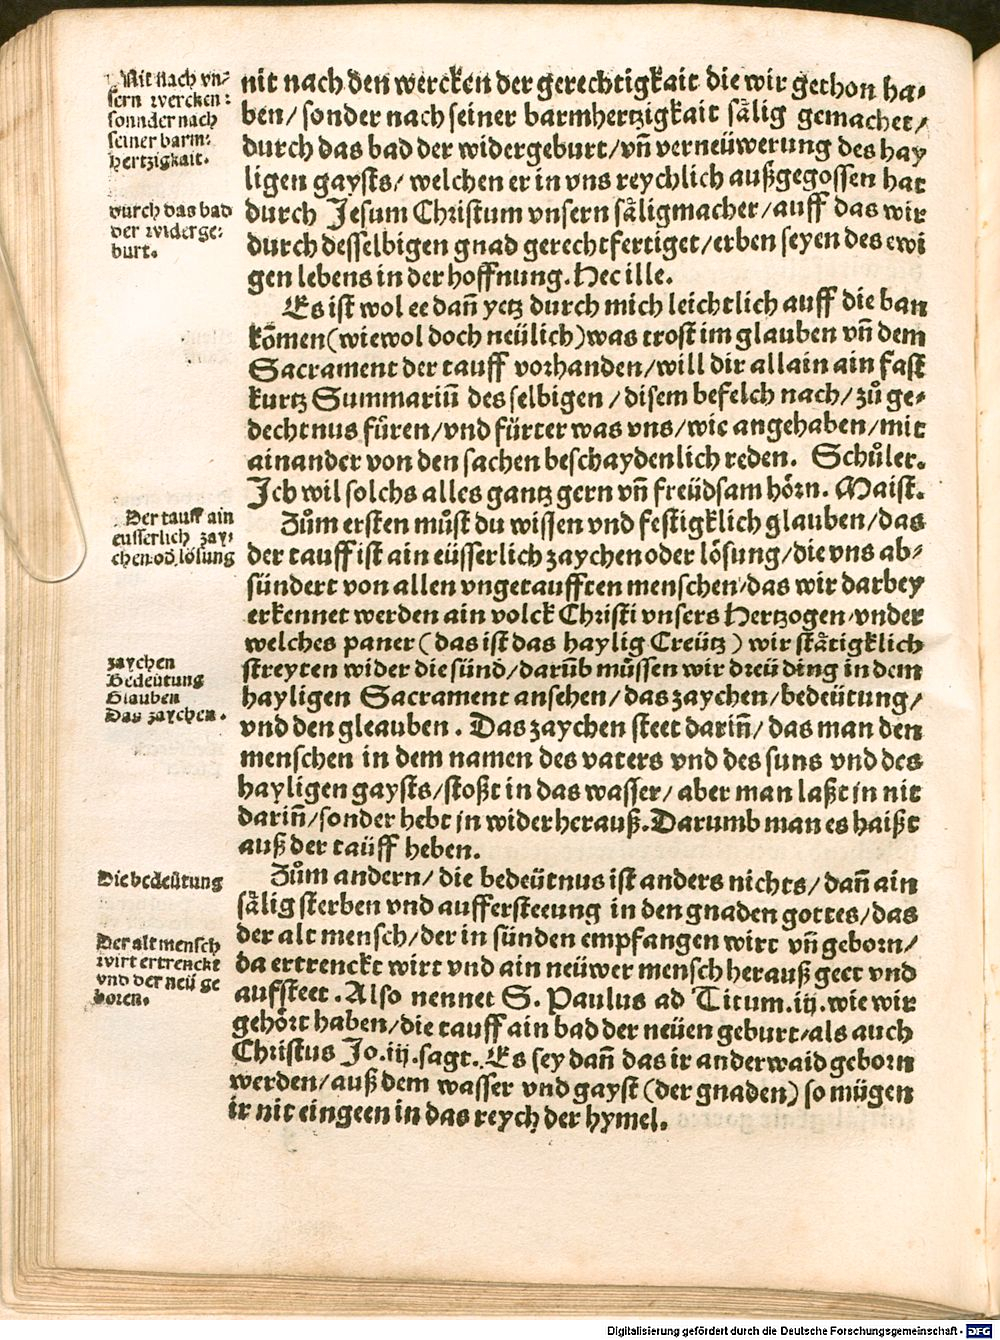 Nit nach vn⸗
sern wercken:
sonnder nach
seiner barm⸗
hertzigkait.
durch das bad
der widerge⸗
burt.
nit nach den wercken der gerechtigkait die wir gethon ha⸗
ben/ sonder nach seiner barmhertzigkait sålig gemachet/
durch das bad der widergeburt/ vñ verneüwerung des hay
ligen gaysts/ welchen er in vns reychlich außgegossen hat
durch Jesum Christum vnsern såligmacher/ auff das wir
durch desselbigen gnad gerechtfertiget/ erben seyen des ewi
gen lebens in der hoffnung. Hec ille.
Es ist wol ee dañ yetz durch mich leichtlich auff die ban
kõmen (wiewol doch neülich) was trost im glauben vñ dem
Sacrament der tauff vorhanden/ will dir allain ain fast
kurtz Summariũ des selbigen / disem befelch nach/ zů ge⸗
dechtnus fůren/ vnd fürter was vns/ wie angehaben/ mit
ainander von den sachen beschaydenlich reden. Schůler.
Ich wil solchs alles gantz gern vñ freüdsam hörn. Maist.
Der tauff ain
eusserlich zay⸗
chen.od lösung
Zům ersten můst du wissen vnd festigklich glauben/ das
der tauff ist ain eüsserlich zaychen oder lösung/ die vns ab⸗
sündert von allen vngetaufften menschen/ das wir darbey
erkennet werden ain volck Christi vnsers Hertzogen/ vnder
welches paner (das ist das haylig Creütz) wir ståtigklich
zaychen
Bedeütung
Glauben
Das zaychen.
streyten wider die sünd/ darũb můssen wir dreü ding in dem
hayligen Sacrament ansehen/ das zaychen/ bedeütung/
vnd den gleauben. Das zaychen steet dariñ/ das man den
menschen in dem namen des vaters vnd des suns vnd des
hayligen gaysts/ stoßt in das wasser/ aber man laßt in nit
dariñ/ sonder hebt in wider herauß. Darumb man es haißt
auß der taüff heben.
Die bedeütung
Zům andern/ die bedeütnus ist anders nichts/ dañ ain
sålig sterben vnd aufferstee ung in den gnaden gottes/ das
Der alt mensch
wirt ertrenckt
vnd der neü ge
boren.
der alt mensch/ der in sünden empfangen wirt vñ geborn/
da ertrenckt wirt vnd ain neüwer mensch herauß geet vnd
aufsteet. Also nennet S. Paulus ad Titum. iij. wie wir
gehört haben/ die tauff ain bad der neüen geburt/ als auch
Christus Jo. iij. sagt. Es sey dañ das ir anderwaid geborn
werden/ auß dem wasser vnd gayst (der gnaden) so mügen
ir nit eingeen in das reych der hymel.
Digitalisierung gefördert durch die Deutsche Forschungsgemeinschaft - DFG